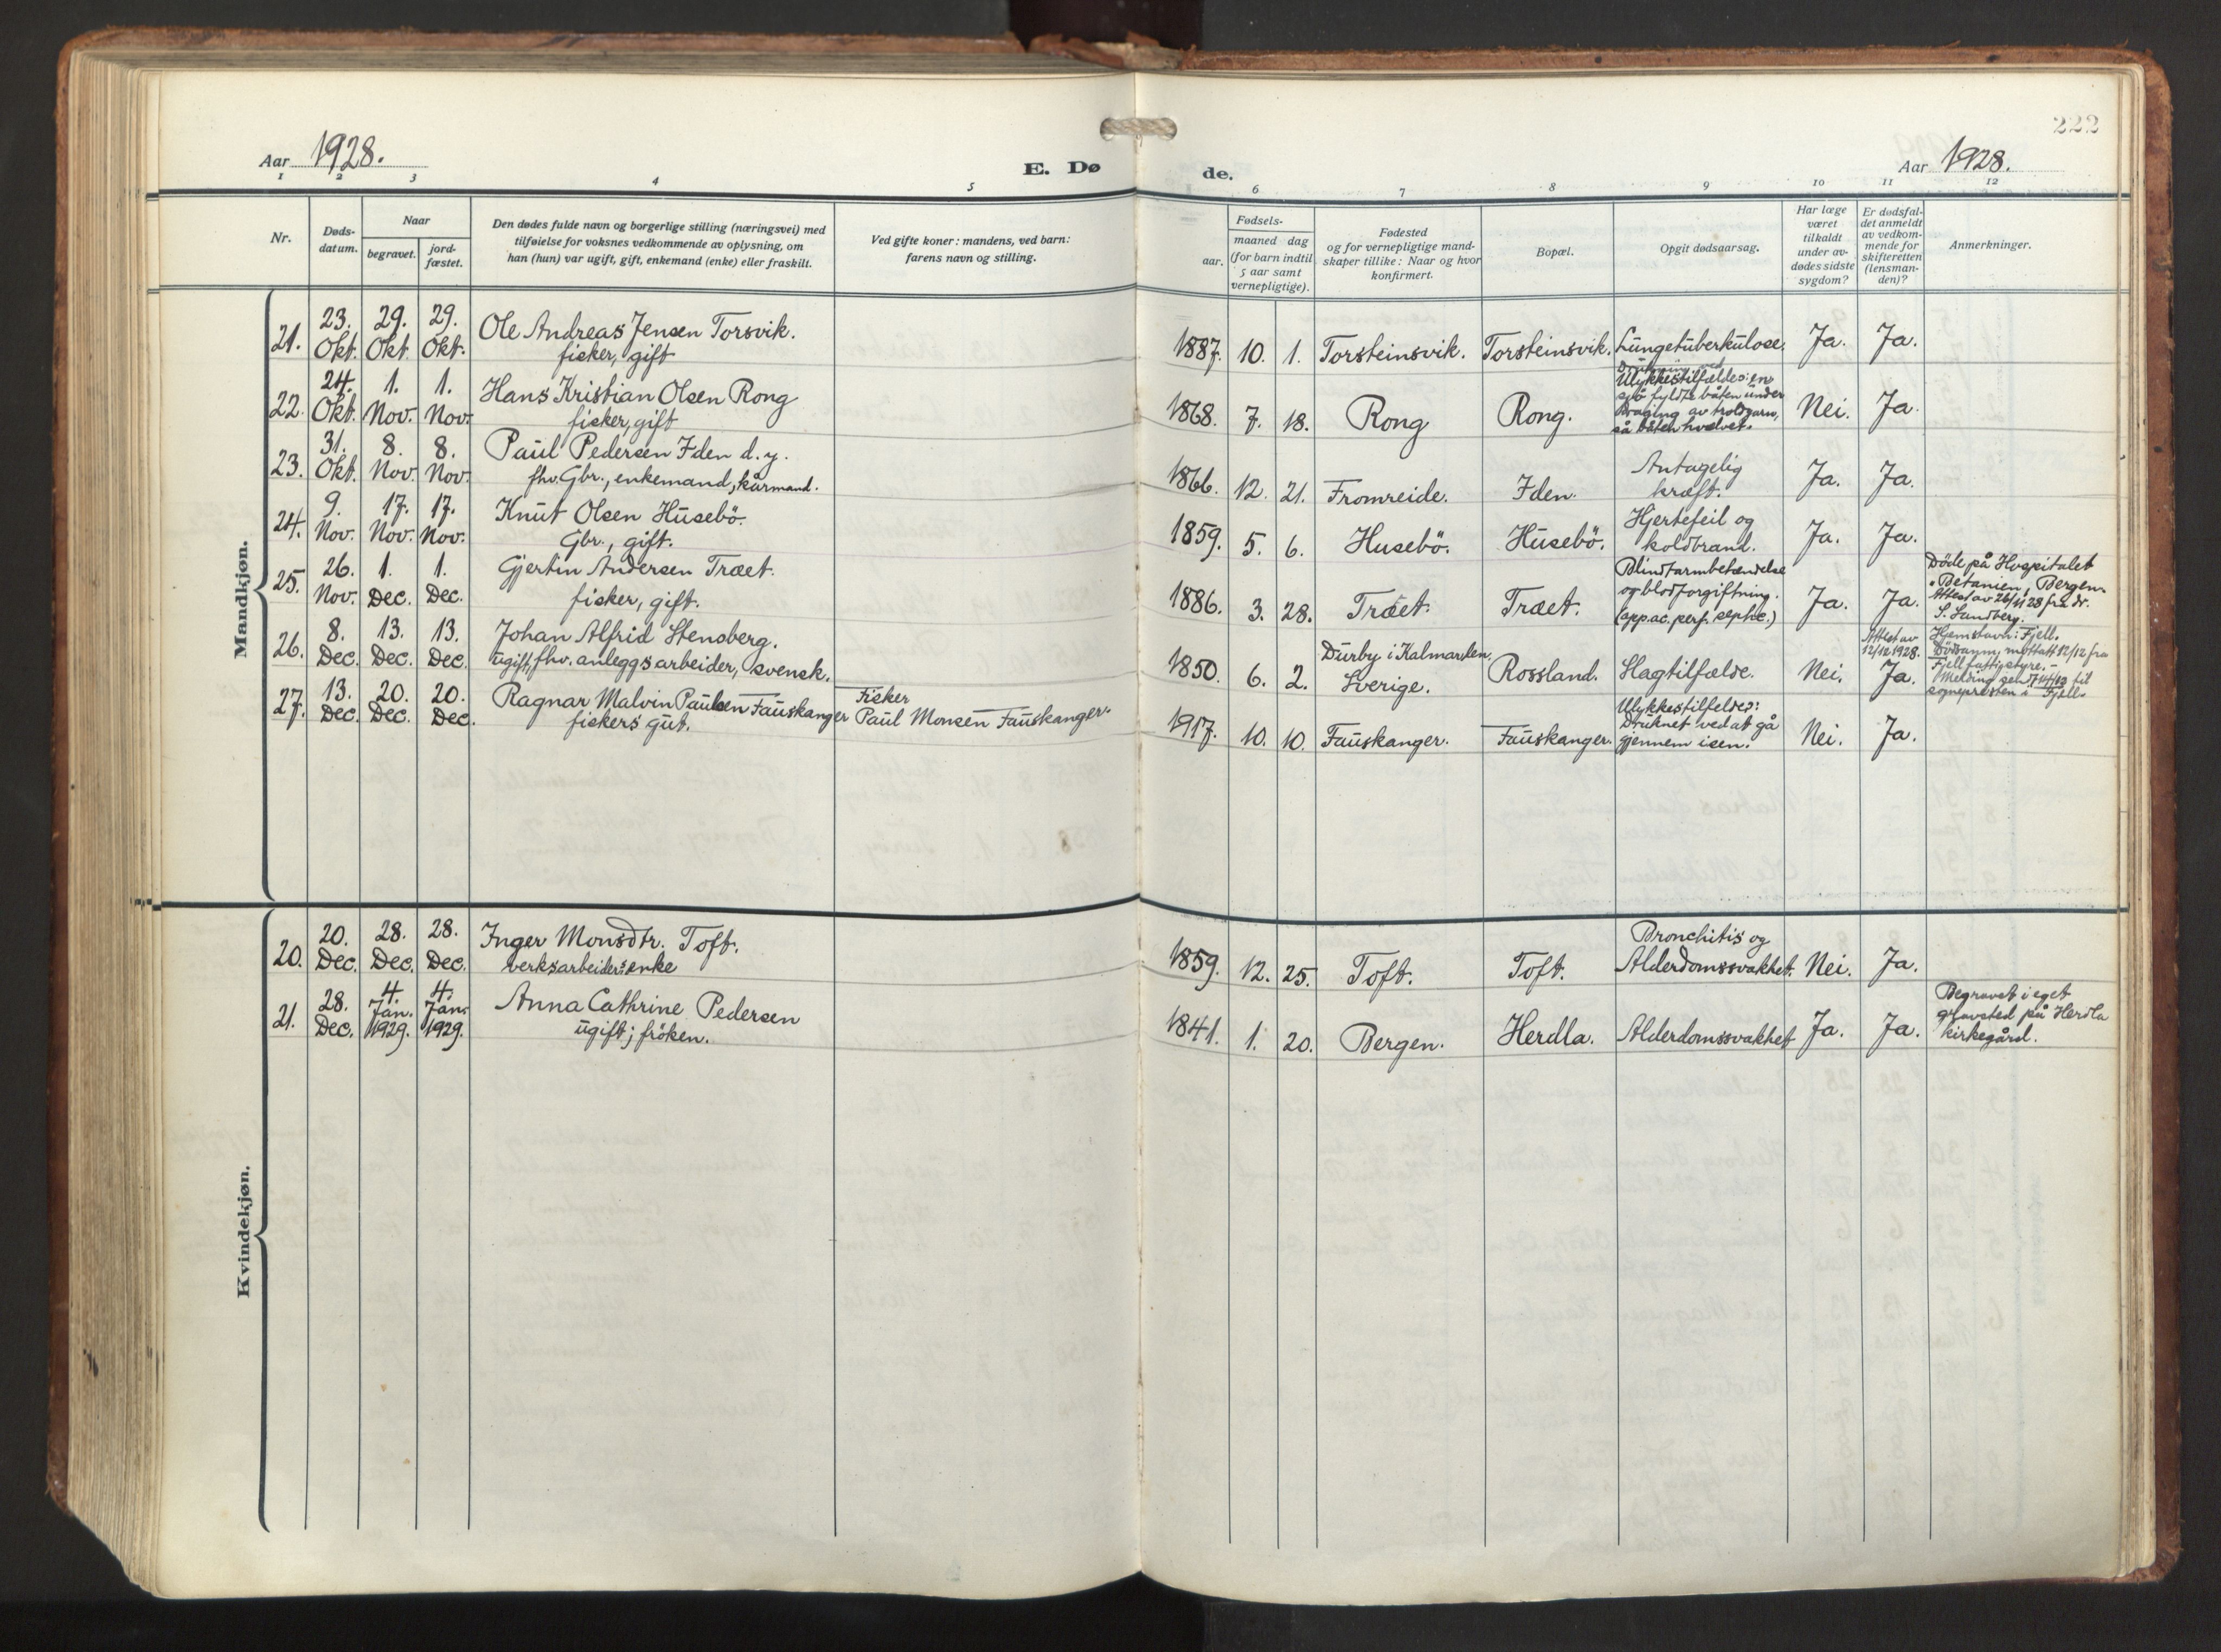 222
Aar 1928.
E. Dø de.
Aar 1928.
1 2 3 4 5 6 7 8 9 10 11 12
Nr.
Døds-
datum.
Naar
begravet.
jord-
fæstet.
Den dødes fulde navn og borgerlige stilling (næringsvei) med
tilføielse for voksnes vedkommende av oplysning, om
han (hun) var ugift, gift, enkemand (enke) eller fraskilt.
Ved gifte koner: mandens, ved barn:
farens navn og stilling.
Fødsels-
aar.
maaned dag
(for barn indtil
5 aar samt
vernepligtige).
Fødested
og for vernepligtige mand-
skaper tillike: Naar og hvor
konfirmert.
Bopæl.
Opgit dødsaarsag.
Har læge
været
tilkaldt
under av-
dødes sidste
sygdom?
Er dødsfal-
det anmeldt
av vedkom-
mende for
skifteretten
(lensman-
den)?
Anmerkninger.
Mandkjøn.
21. 23. Okt. 29. Okt. 29. Okt. Ole Andreas Jensen Torsvik.
fisker, gift
1887. 10. 1. Torsteinsvik. Torsteinsvik. Lungetuberkulose. Ja. Ja.
22. 24. Okt. 1. Nov. 1. Nov. Hans Kristian Olsen Rong
fisker, gift
1868. 7. 18. Rong Rong.
Ulykkestilfælde: en
sjö fyldte båten under
draging av troldgarn,
så båten hvælvet.
Nei. Ja.
23. 31. Okt. 8. Nov. 8. Nov. Paul Pedersen Iden d.y.
fhv. Gbr., enkemand, kårmand.
1866. 12. 21. Fromreide. Iden.
Antagelig
kræft.
Ja. Ja.
24. 9. Nov. 17. Nov. 17. Nov. Knut Olsen Husebö.
Gbr., gift.
1859. 5. 6. Husebö. Husebö.
Hjertefeil og
koldbrand.
Ja. Ja.
25. 26. Nov. 1. Dec. 1. Dec. Gjertin Andersen Træet.
fisker, gift.
1886. 3. 28. Træet. Træet.
Blindtarmbetændelse
og blodforgiftning.
(app. ac. perf. )
Ja. Ja.
Döde på Hospitalet
"Betanien", Bergen.
Attest av 26/11 28 fra dr.
S. Sandberg.
26. 8. Dec. 13. Dec. 13. Dec. Johan Alfrid Stensberg.
ugift, fhv. anleggsarbeider, svensk.
1850. 6. 2.
Durby i Kalmarslen,
Sverige.
Rossland. Slagtilfælde. Nei.
Attest av
12/12 1928.
Ja.
Hjemstavn: Fjell.
mottatt 12/12 fra
Fjell fattigstyre.-
Melding sendt 14/12 til
sognepresten i Fjell.
27. 13. Dec. 20. Dec. 20. Dec. Ragnar Malvin Paulsen Fauskanger
fiskers gut.
Fisker
Paul Monsen Fauskanger.
1917. 10. 10. Fauskanger. Fauskanger.
Ulykkestilfelde:
Druknet ved at gå
gjennem isen.
Nei. Ja.
Kvindekjøn.
20. 20. Dec. 28. Dec. 28. Dec. Inger Monsdtr. Toft.
verksarbeiders enke
1859. 12. 25. Toft. Toft.
Bronchitis og
Alderdomssvakhet.
Nei. Ja.
21. 28. Dec. 4. Jan. 1929. 4. Jan. 1929. Anna Cathrine Pedersen
ugift; fröken.
1841. 1. 20. Bergen. Herdla. Alderdomssvakhet Ja. Ja.
Begravet i eget
gravsted på Herdla
kirkegård.